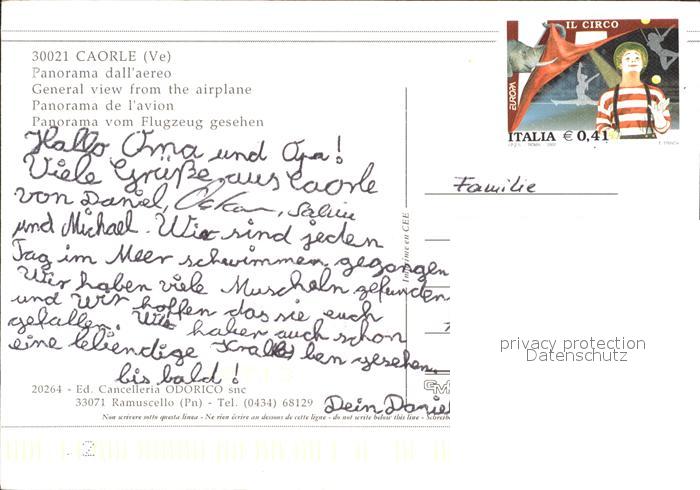 30021 CAORLE (Ve)
Panorama dall'aereo
General view from the airplane
Panorama de l'avion
Panorama vom Flugzeug gesehen
Hallo Oma und Opa!
Viele Grüße aus Caorle
von Daniel, Oskar, Sabine
und Michael. Wir sind jeden
Tag im Meer schwimmen gegangen
Wir haben viele Muscheln gefunden.
und wir hoffen das sie euch
gefallen. Wir haben auch schon
eine lebendige Krabben gesehen.
bis bald!
Dein Daniel
20264 - Ed. Cancelleria ODORICO snc
33071 Ramuscello (Pn) - Tel. (0434) 68129
Non scrivere sotto questa linea - Ne rien écrire au dessous de cette ligne - do not write below this line -
2
Imprimé en CEE
IL CIRCO
EUROPA
ITALIA € 0,41
Familie
privacy protection
Datenschutz